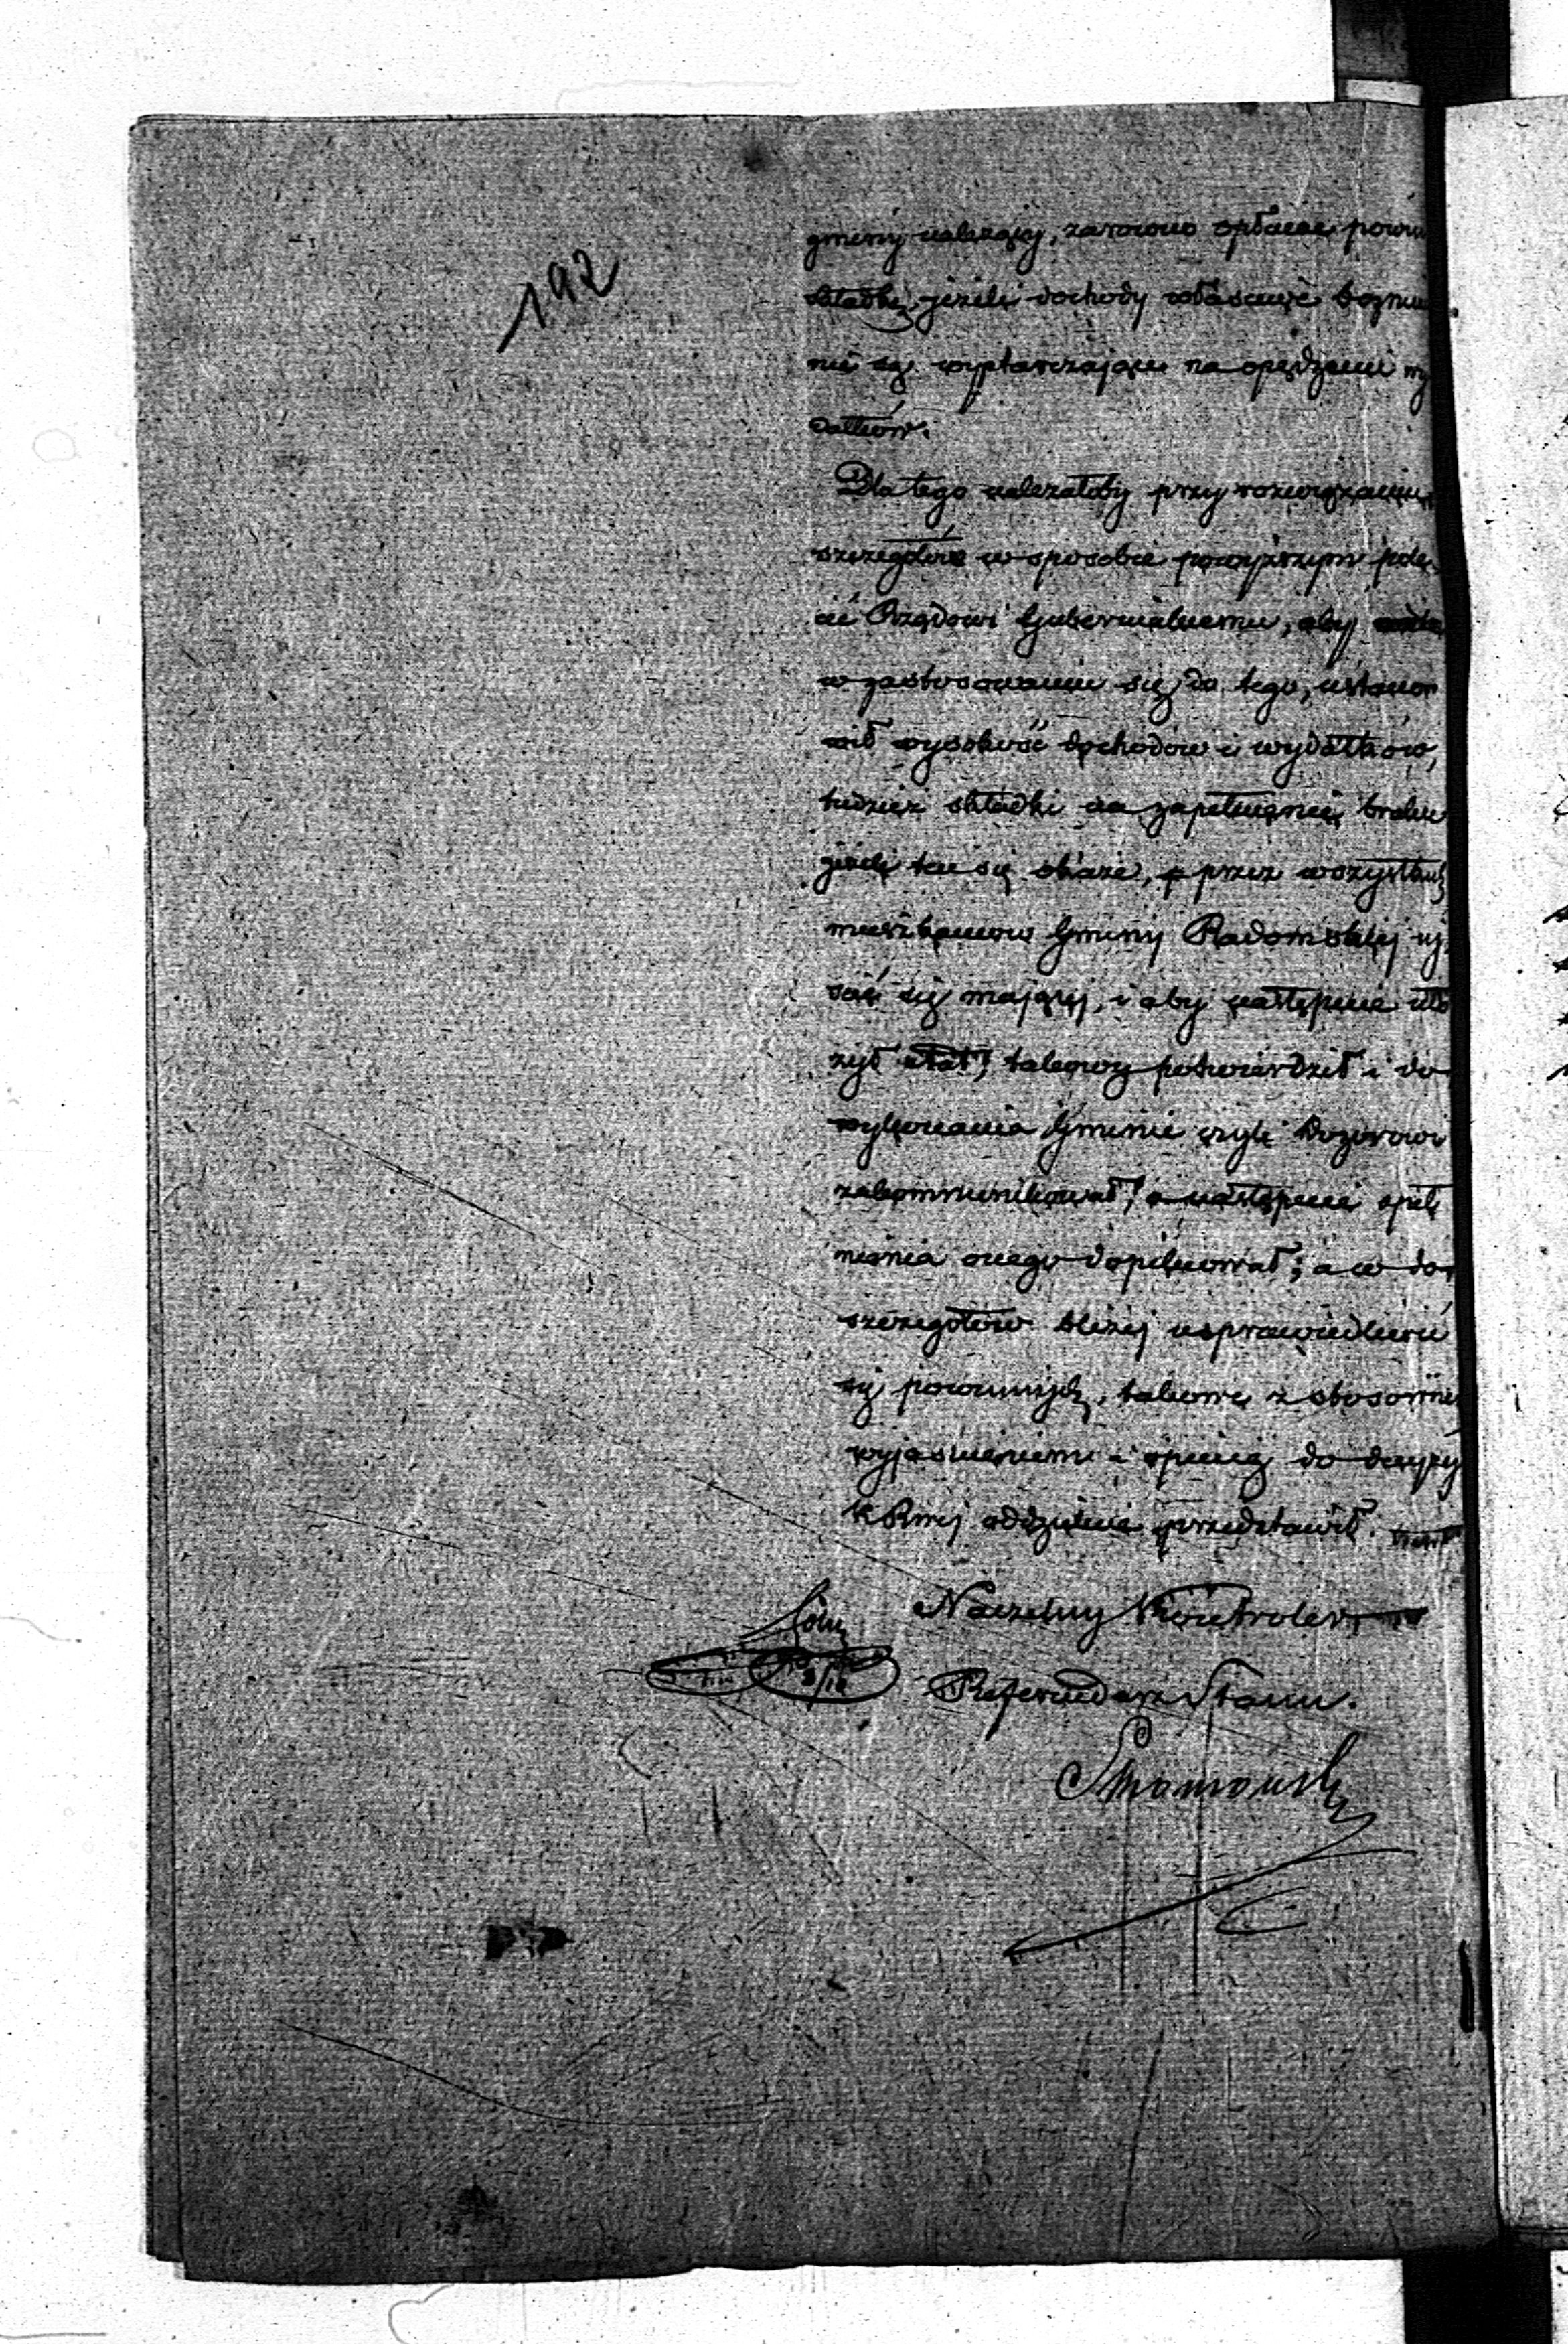 192
gminy należący, zarówno opłacać powin
składkę, jeżeli dochody właściwe bożni
nie są wystarczające na opędzenie wy
datków.
Dla tego należałoby przy rozwiązaniu
szczegółów w sposobie powyższym pole
cić Rządowi Gubernialnemu, aby
w zastosowaniu się do tego, ustano
wił wysokość dochodów i wydatków,
tudzież składki na zapełnienie braku
jeżeli ten się okaże, przez wszystkich
mieszkańców Gminy Radomskiej ui
ścić się mającej, i aby następnie uło
żył etat, takowy potwierdził i do
wykonania Gminie czyli Dozorowi
zakommunikował, a następnie speł
nienia onego dopilnował; a co do
szczegółów bliżej usprawiedliwić
się powinnych, takowe z stosownem
wyjaśnieniem i opinią do decyzyi
KRznej oddzielnie przedstawił.
Naczelny Kontroler
Referendarz Stanu.